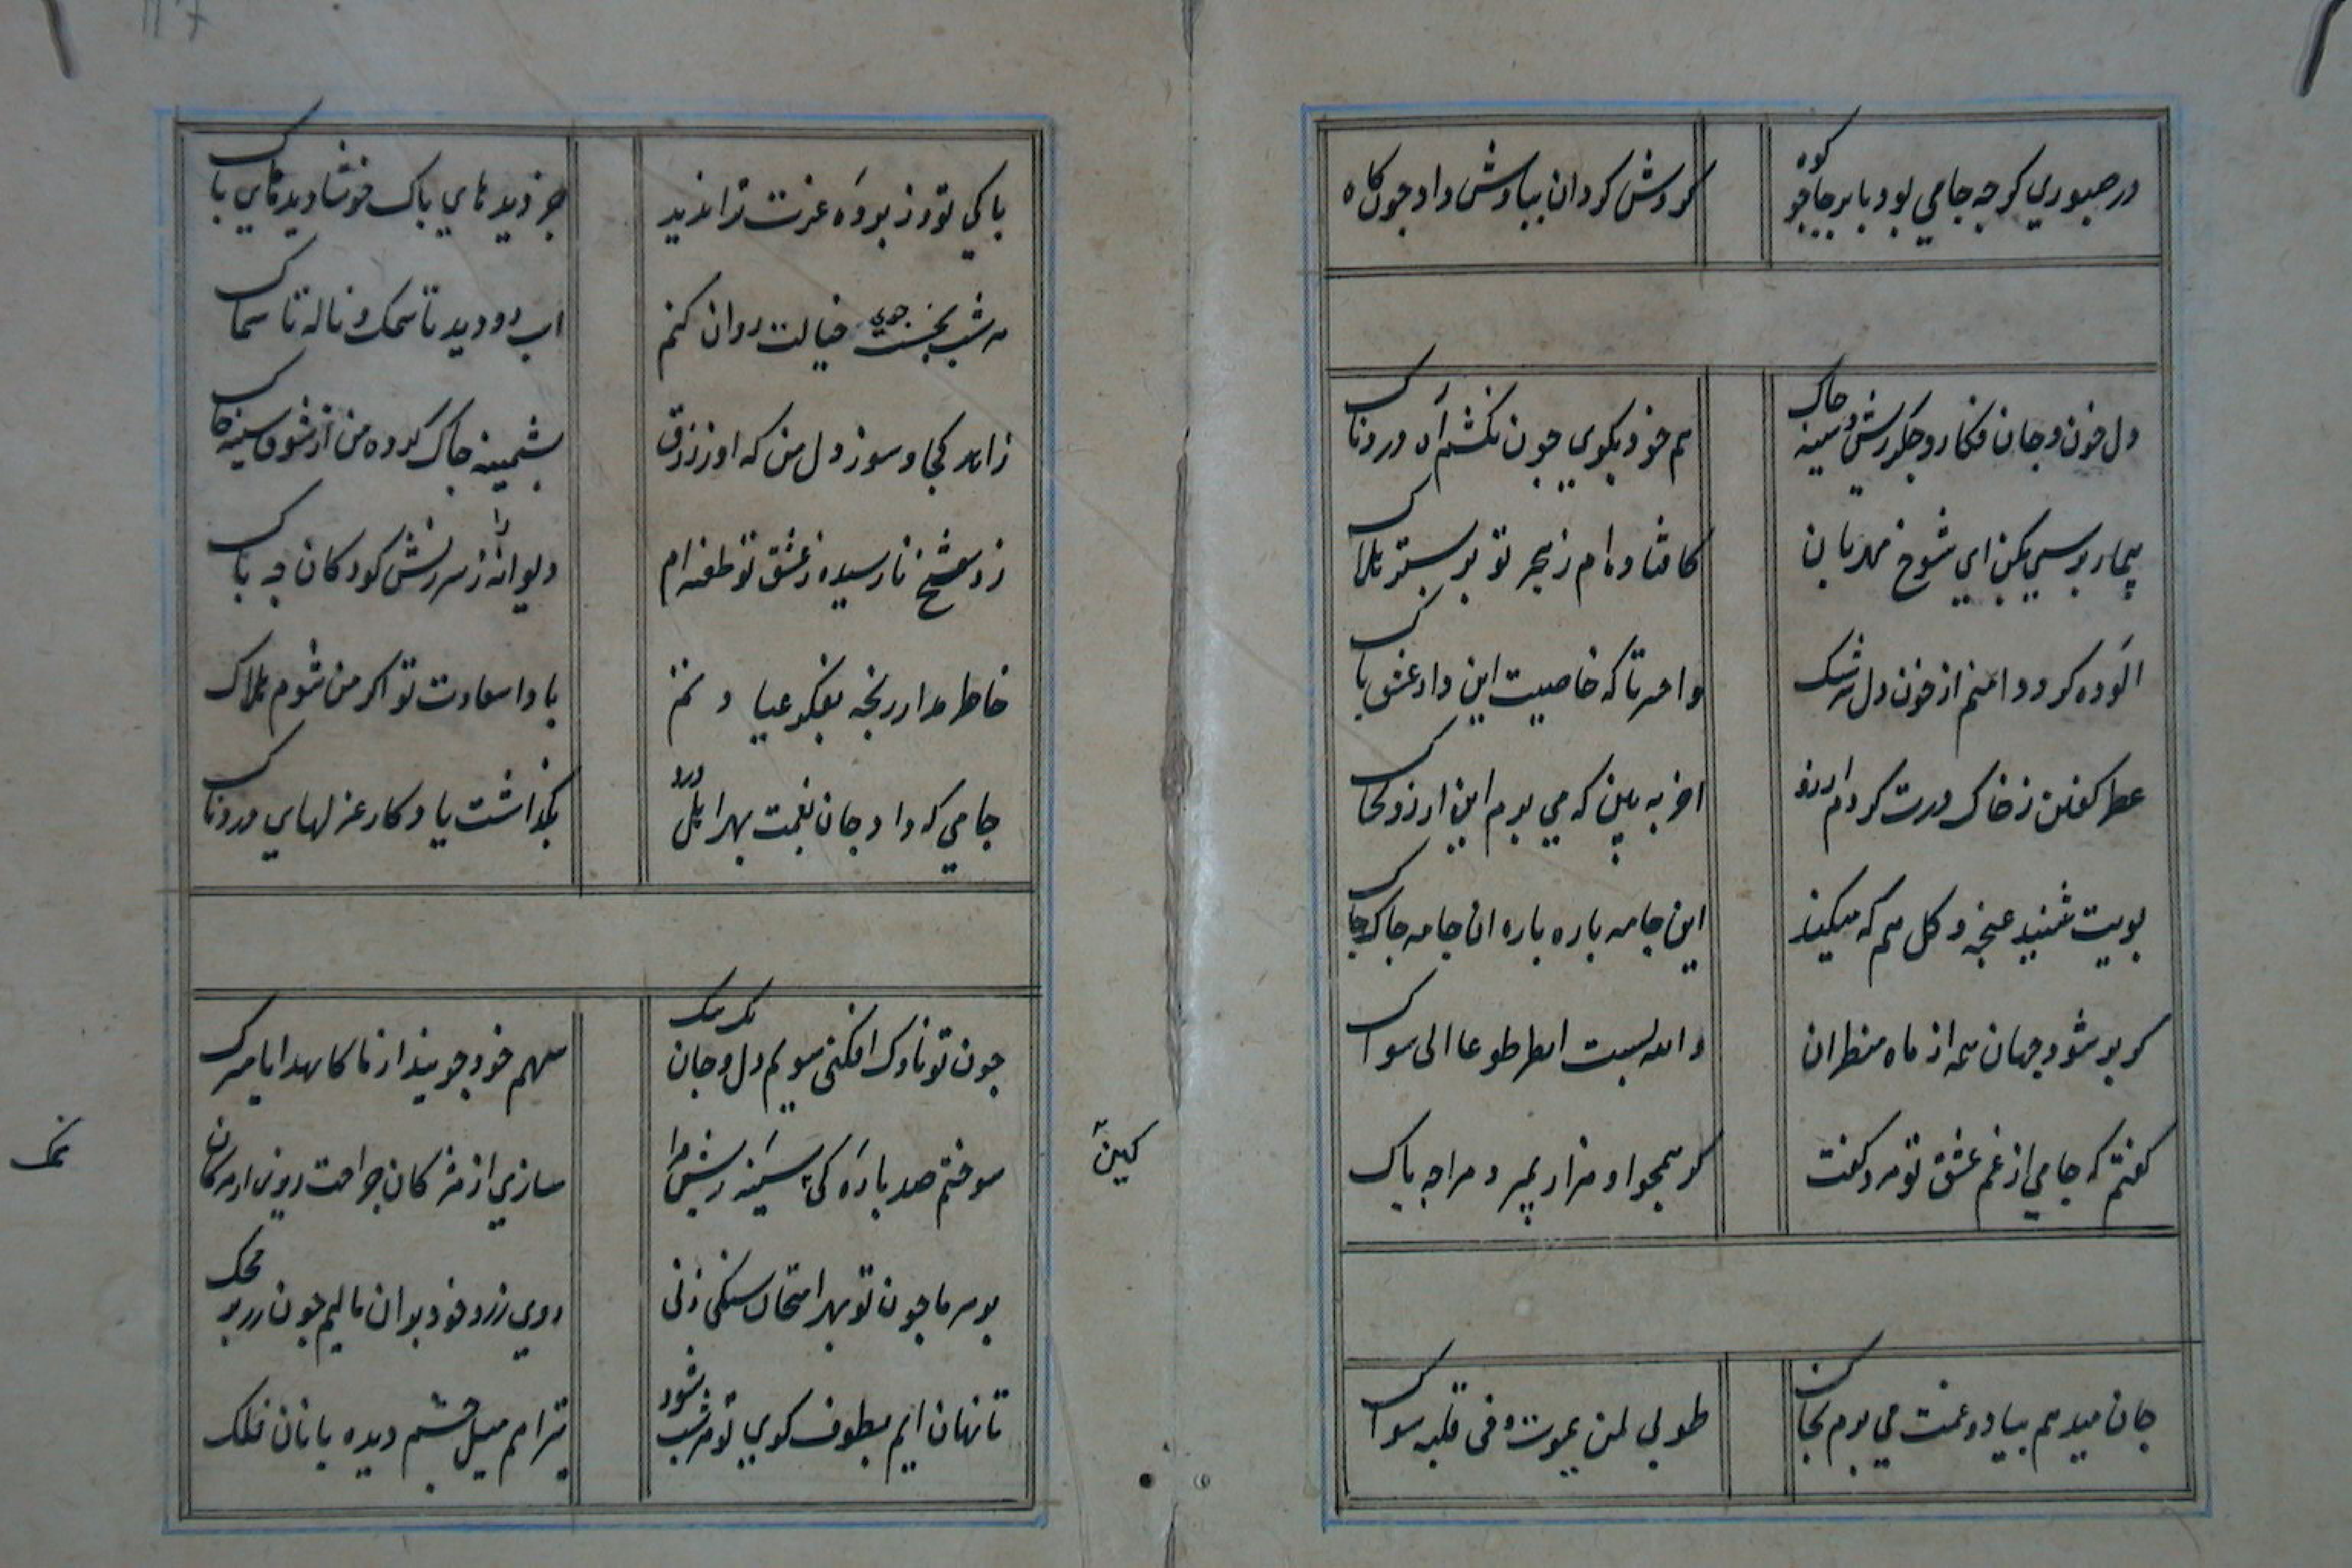 در صبوری کرچه جامی بود با بر جا چو کوه
کردش کردان ببادش داد چون کاه
دل خون و جان فکار و جکر ریش و سینه چاک
هم خود بکوی چون نکشم آه دردناک
بیمار پرسی بکن ای شوخ مهربان
کافتاده ام ز هجر تو بر بستر هلاک
الوده کرد دامنم از خون دل سرشک
واحسرتا که خاصیت این داد عشق پاک
عطر کفن ز خاک درت کردم ارزو
اخر به بین که می برم این ارزو بخاک
بویت شنید غنچه و کل هم که میکند
این جامه پاره پاره ان جامه چاک چاک
کر پر شود جهان همه از ماه منظران
والله لست انظر طوعا الی سواک
کفتم که جامی از غم عشق تو مرد کفت
کر همچو او هزار بمیرد مرا چه باک
جان میدهم بیاد و غمت می برم بخاک
طوبی لمن یموت و فی قلبه سواک
پاکی تو و ز پرده عزت ترا ندید
جز دیدهای پاک خوشا دیدهای پاک
هر شب بجست و جوی خیالت روان کنم
اب دو دیده تا سمک و ناله تا سماک
زاهد کجا و سوز دل من که او ز زرق
پشمینه چاک کرده من از شوق سینه چاک
زد شیخ نارسیده ز عشق تو طعنه ام
دیوانه را ز سرزنش کودکان چه باک
خاطر مدار رنجه بفکر عیادتم
بادا سعادت تو اکر من شوم هلاک
جامی که داد جان بغمت بهر اهل درد
بکذاشت یادکار غزلهای دردناک
چون تو ناوک افکنی سویم دل و جان یک بیک
سهم خود جویند از ما کاهدایا مشترک
سوختم صد پاره کن سینه ریش مرا
سازی از مژکان جراحت ریزی از مژکان نمک
کهین
نمک
بر سر ما چون تو بهر امتحان سنکی زنی
روی زرد خود بران مالیم چون زر بر محک
تا نهان ایم بطوف کوی تو هر شب شود
تیر اهم میل چشم دیده بانان فلک